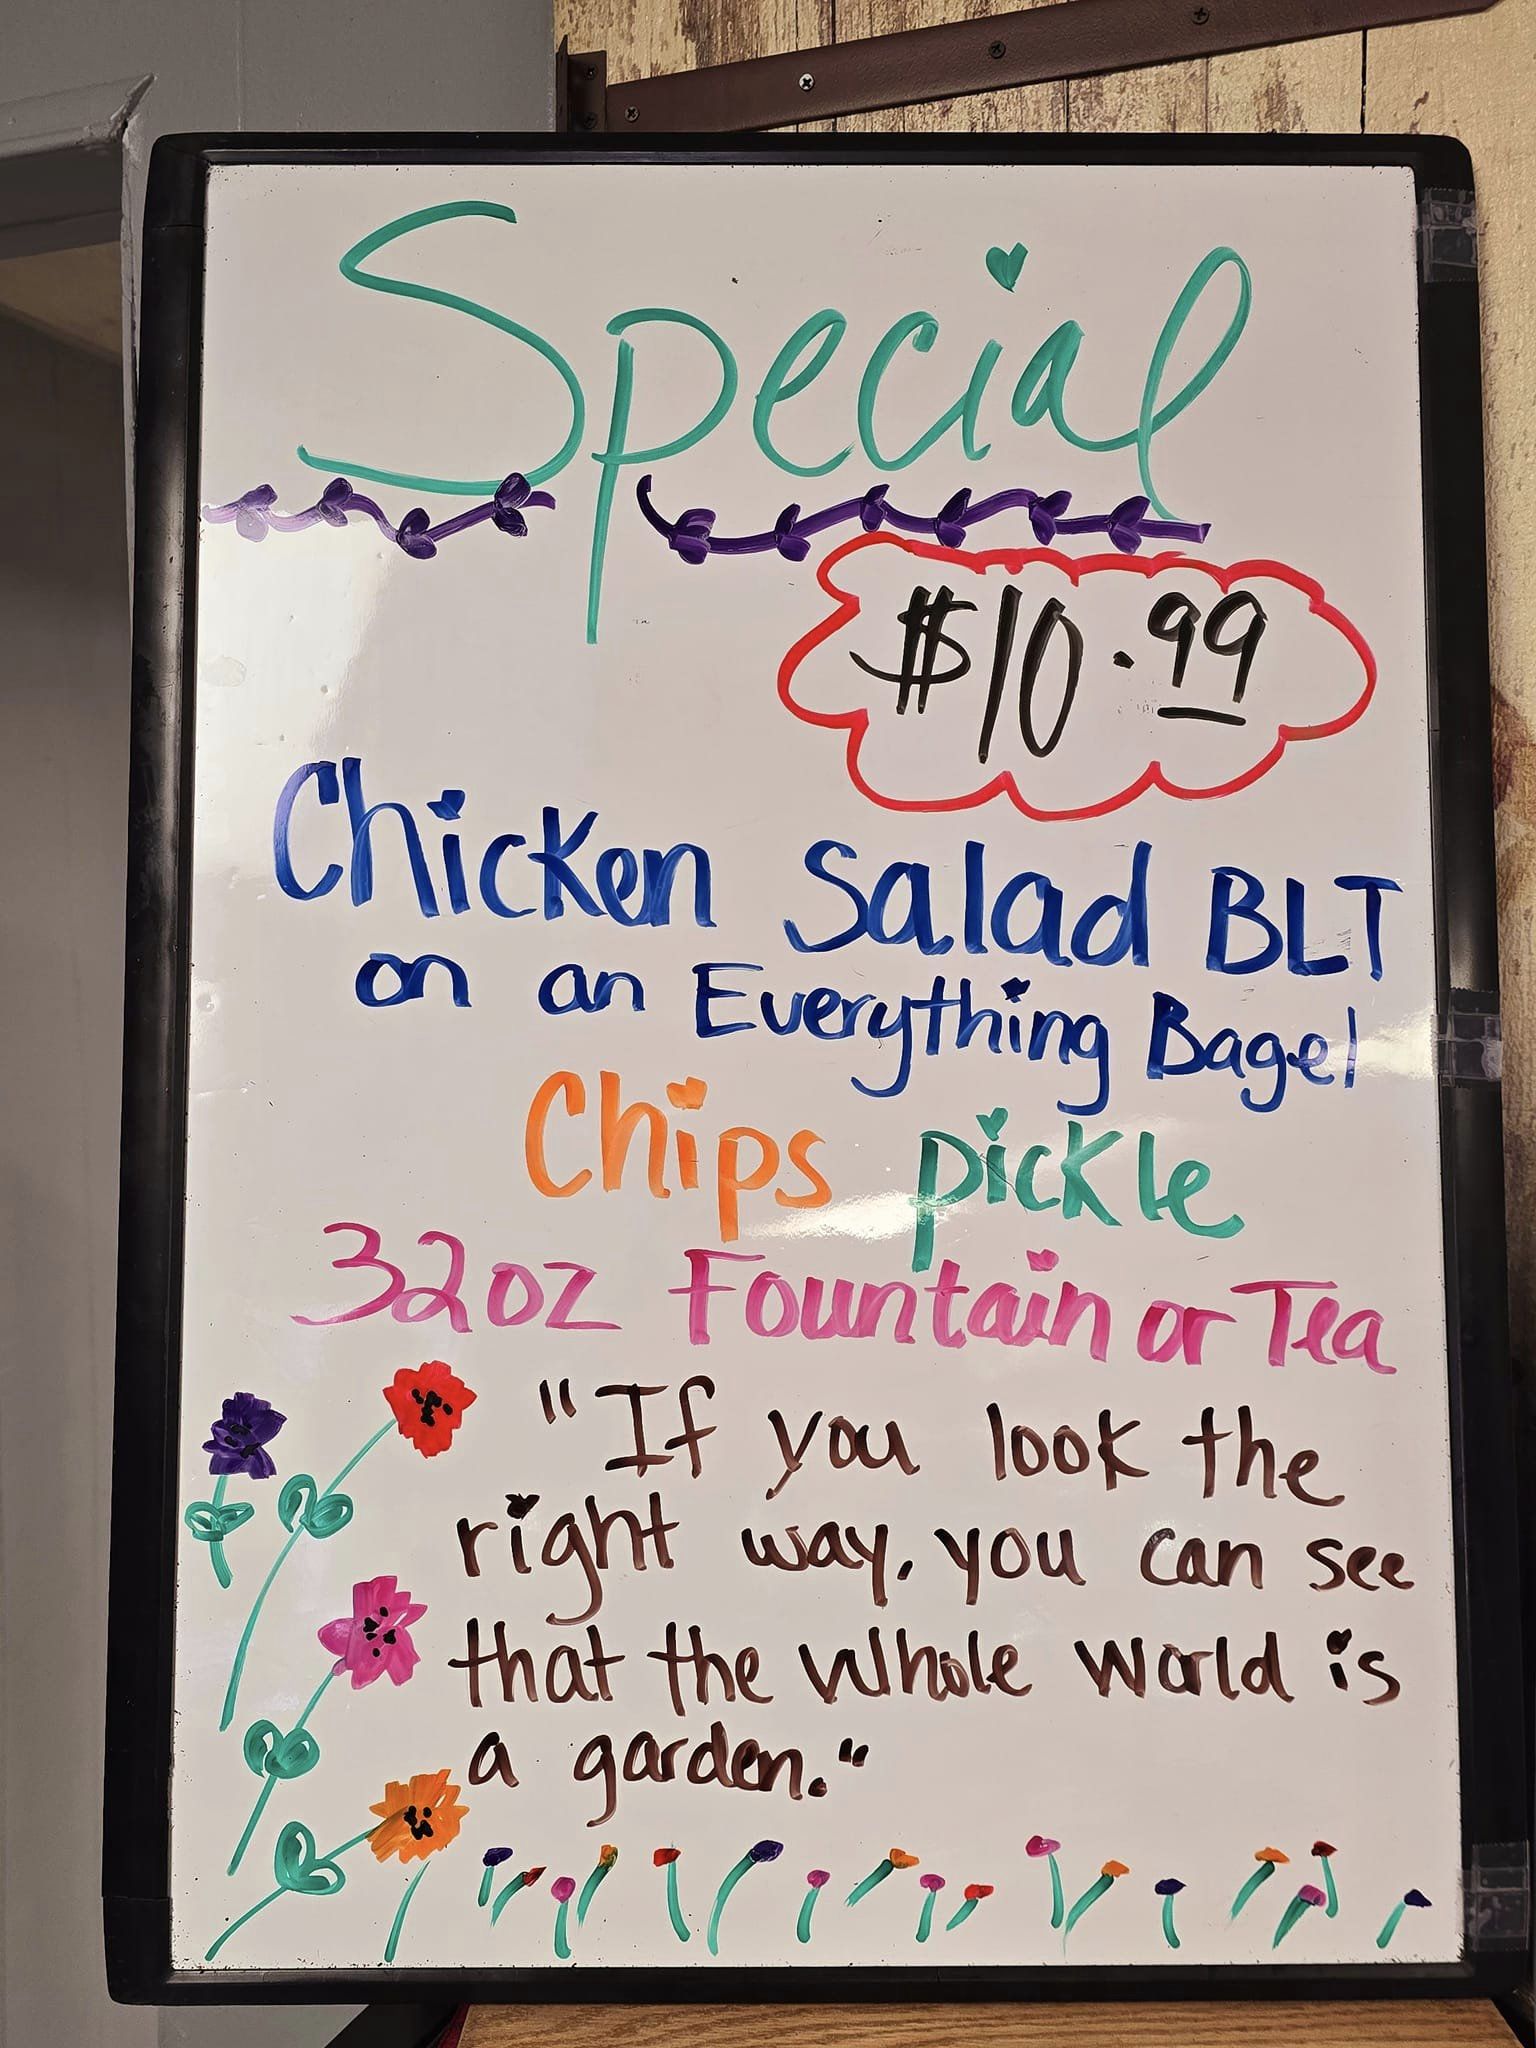 Special
$10.99
Chicken Salad BLT
on an Everything Bagel
Chips pickle
32oz Fountain or Tea
"If you look the
right way, you can see
that the whole world is
a garden."